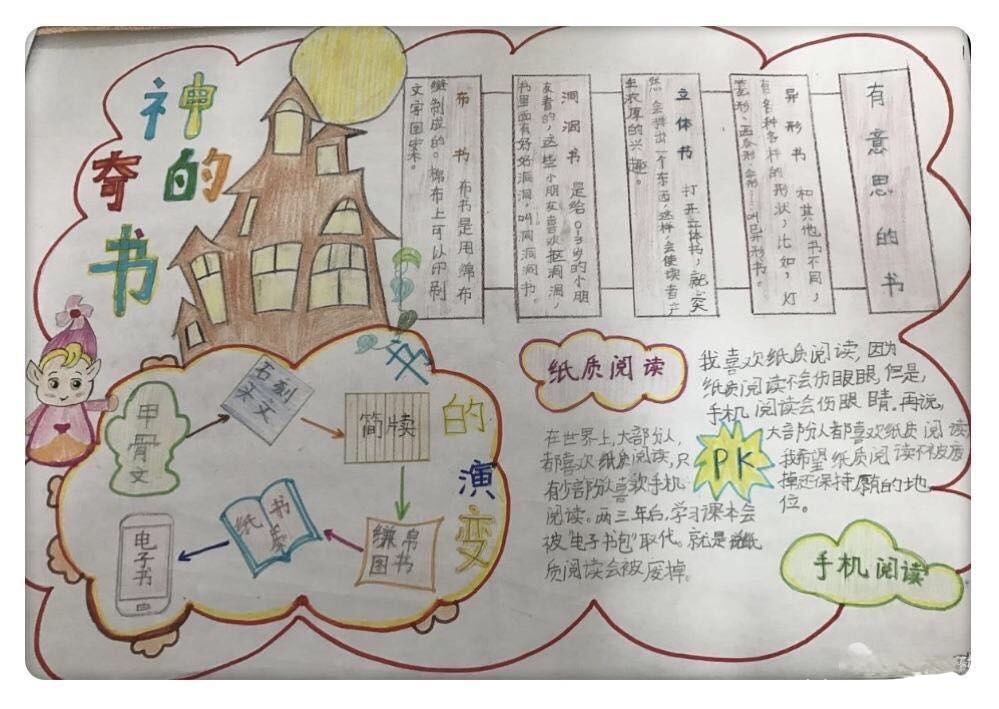 神奇的书
有意思的书
异形书 和其他书不同，
有各种各样的形状，比如，灯
笼形、西瓜形
叫异形书。
立体书 打开立体书，就突
然会拱出一个东西，这样，会使读者产
生浓厚的兴趣。
洞洞书 是给0-3岁的小朋
友看的，这些小朋友喜欢抠洞洞，
书里面有好好洞洞。叫洞洞洞书。
布书 布书是用绵布
缝制成的。棉布上可以印刷
文字图案。
书的演变
甲骨文
石刻
头文
简牍
缣帛
图书
纸书
电子书
纸质阅读
我喜欢纸质阅读，因为
纸质阅读不会伤眼眼，但是，
手机阅读会伤眼睛。再说，
大部分人都喜欢纸质阅读，
我希望纸质阅读不被废
掉还保持原有的地
位。
PK
在世界上，大部分人，
都喜欢纸质阅读，只
有少部分人喜欢手机
阅读。两三年后，学习课本会
被"电子书包"取代。就是说纸
质阅读会被废掉。
手机阅读